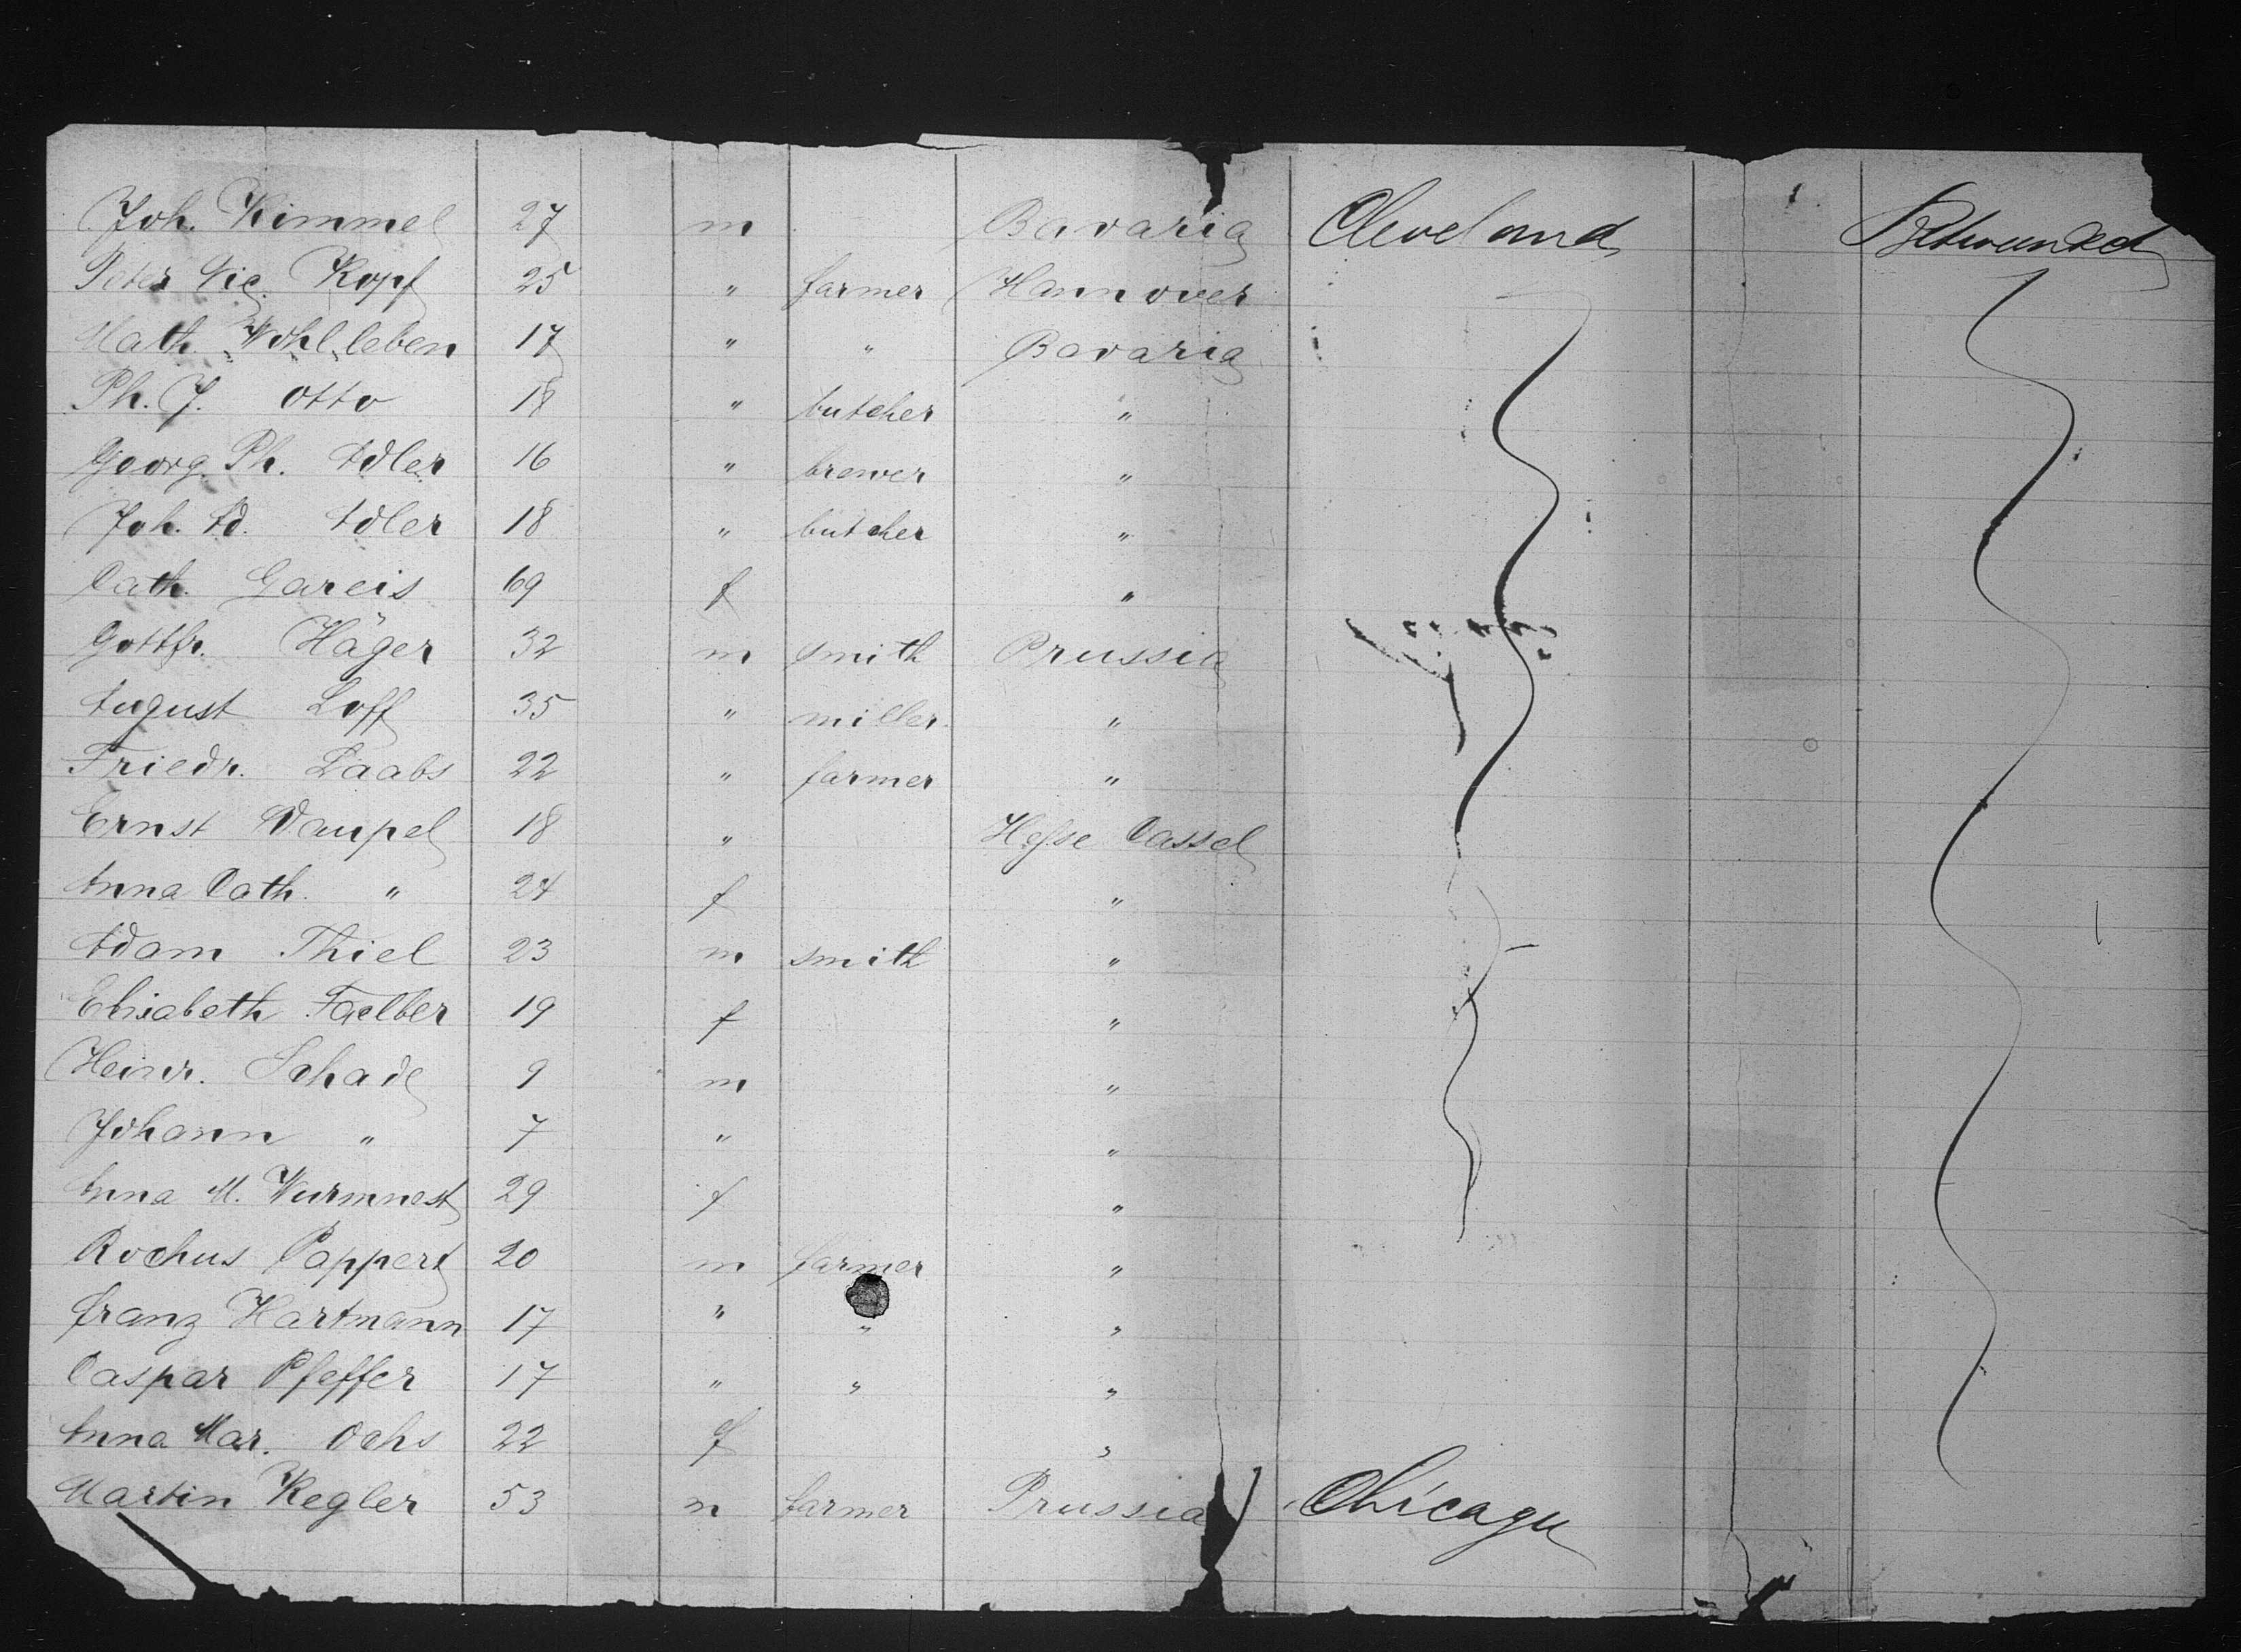 Joh. Kimmel 27 m Bavaria Cleveland Betweendeck
Peter Nic. Kopf 25 " farmer Hannover
Math. Wohlleben 17 " " Bavaria
Ph. J. Otto 18 " butcher "
Georg Ph. Adler 16 " brewer "
Joh. Ad. Adler 18 " butcher "
Cath. Gareis 69 f "
Gottfr. Häger 32 m smith Prussia
August Loff 35 " miller "
Friedr. Laabs 22 " farmer "
Ernst Daupel 18 " Hesse Cassel
Anna Cath. " 24 f "
Adam Thiel 23 m smith "
Elisabeth Faelber 19 f "
Heinr. Schade 9 m "
Johann " 7 " "
Anna M. Wurmnest 29 f "
Rochus Pappert 20 m farmer "
Franz Hartmann 17 " " "
Caspar Pfeffer 17 " " "
Anna Mar. Ochs 22 f "
Martin Kegler 53 m farmer Prussia Chicago